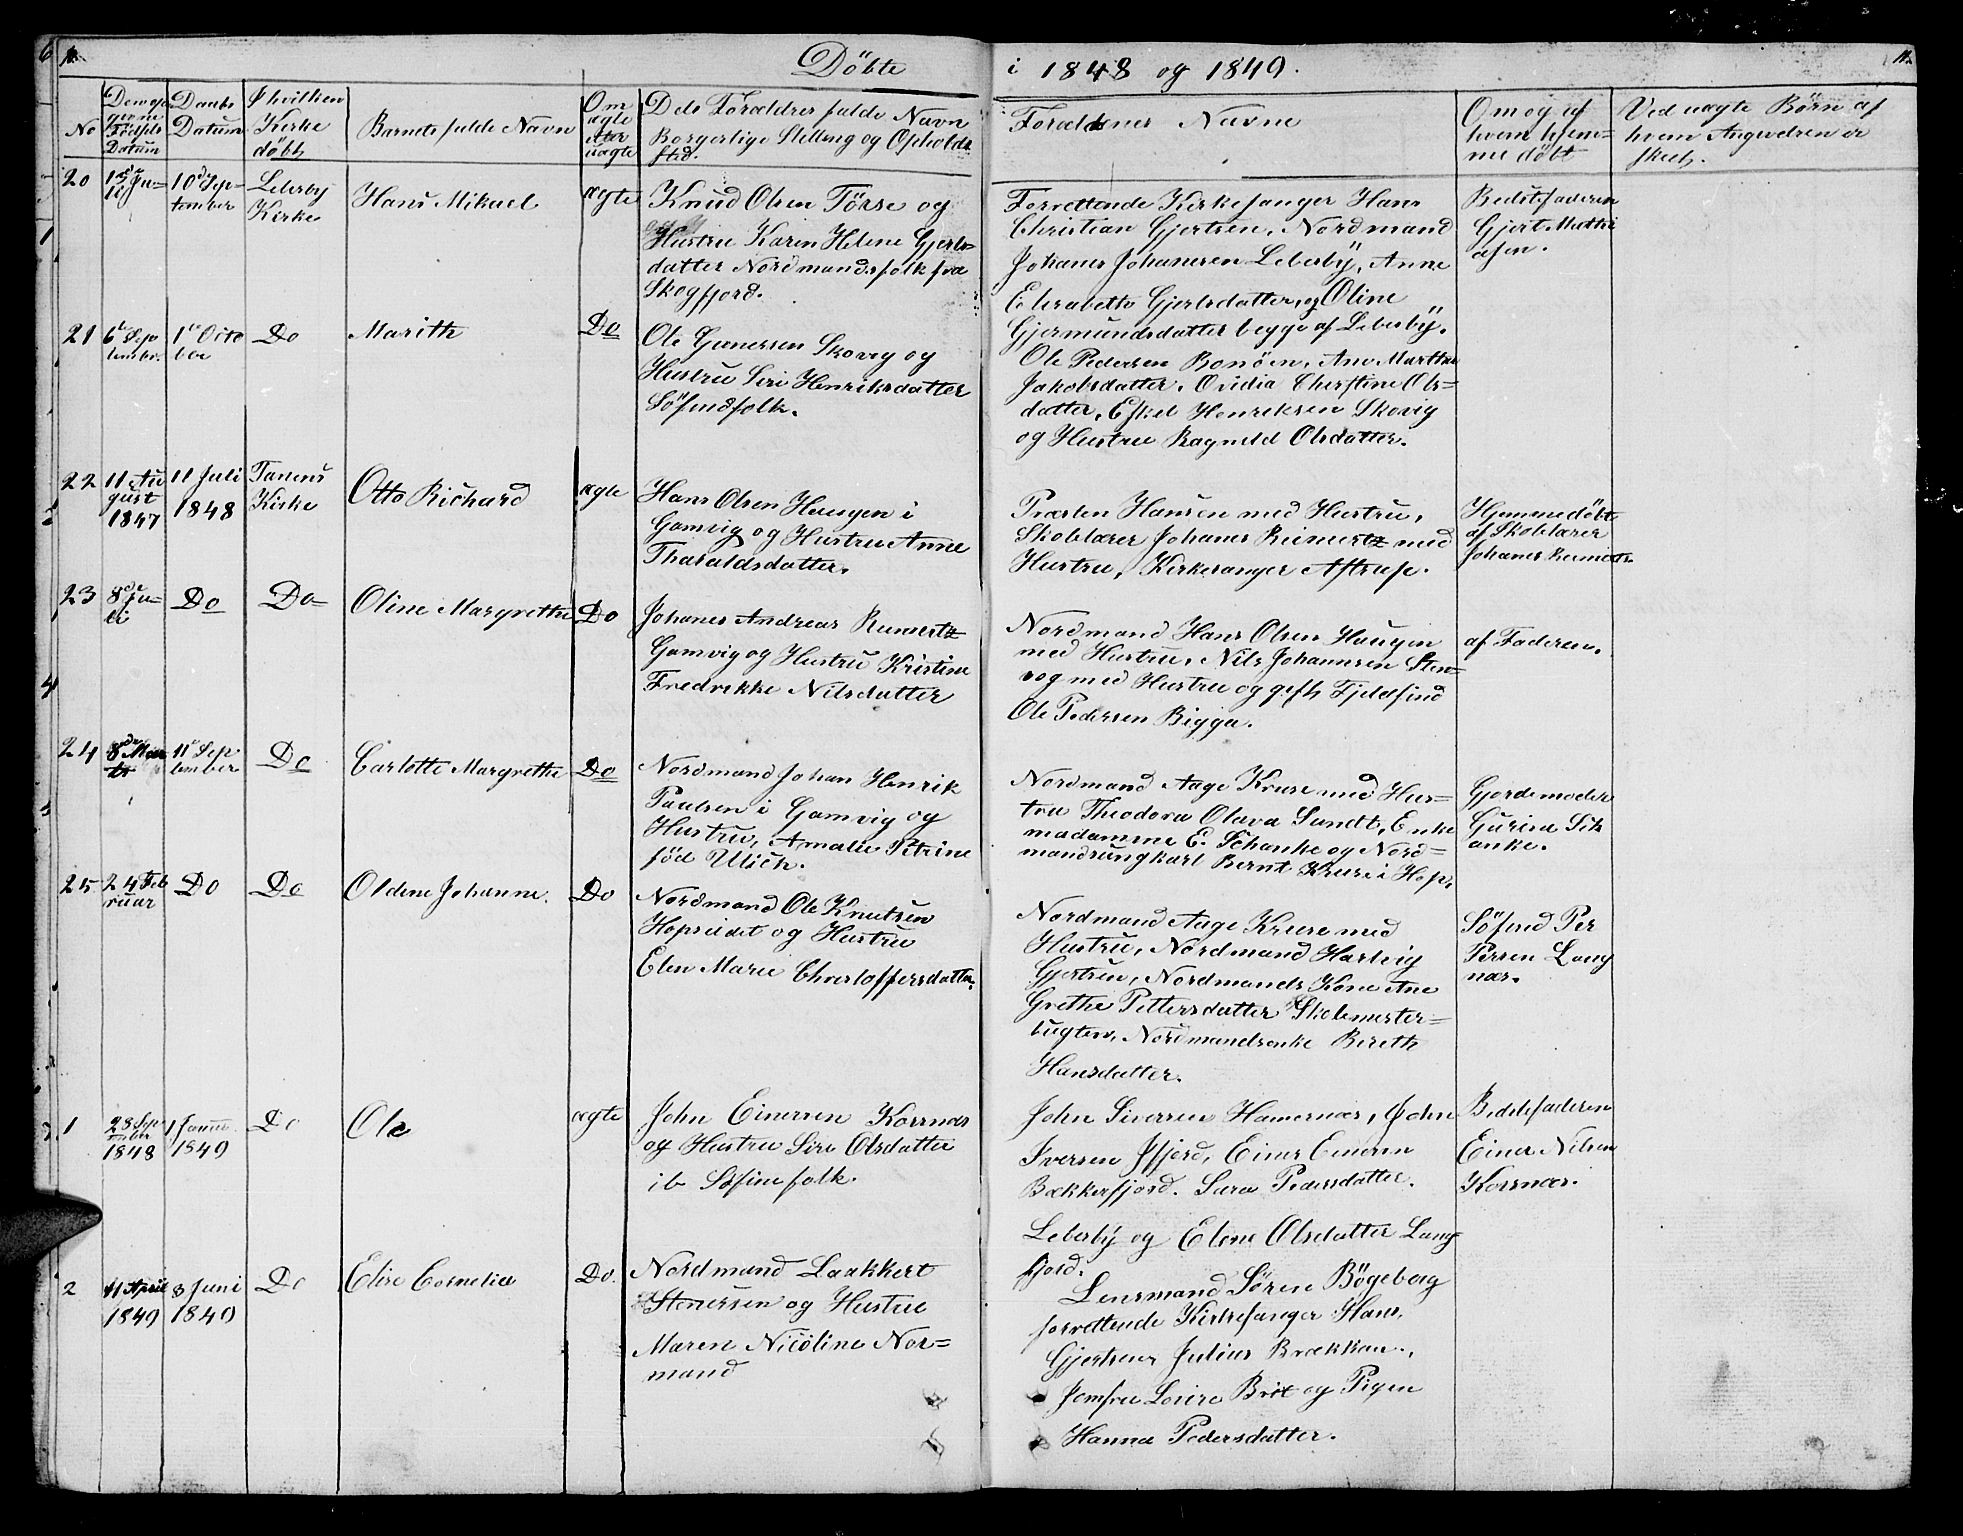 Döbte i 1848 og 1849.
No
Födsels Datum
Daabs Datum
I hvilken Kirke döbt
Barnets fulde Navn
Om ægte eller uægte
Dets Forældres fulde Navn
Borgerlige Stilling og Opholds
sted.
Faddernes Navne
Om og af
hvem hjem-
me döbt
Ved uægte Börn af
hvem Angivelsen er
skeet.
20
10de Sep-
tember
Lebesby
Kirke
Hans Mikael
ægte
Knud Olsen Törse og
Hustru Karen Helene Gjerts-
datter Nordmandsfolk fra
Skogfjord.
Forrettende Kirkesanger Hans
Christian Gjertsen, Nordmand
Johanes Johannesen Lebesby, Anne
Elisabeth Gjertsdatter, og Oline
Gjermundsdatter begge af Lebesby.
Bedstefaderen
Gjert Mathi
asen.
21
6te Sep
tembr.
1te Octo
ber
Do
Marith
Do
Ole Gunersen Skovig og
Hustru Siri Henriksdatter
Söfindfolk.
Ole Pedersen Bonöen, Ane Marthe
Jakobsdatter, Ovidia Christine Ols-
datter, Eskel Henriksen Skovig
og Hustru Ragnild Olsdatter.
22
11 Au
gust
1847
11 Juli
1848
Tanens
Kirke
Otto Richard
ægte
Hans Olsen Haugen i
Gamvig og Hustru Anne
Tharaldsdatter.
Præsten Hansen med Hustru,
Skolelærer Johanes Reimertz med
Hustru, Kirkesanger Astrup.
Hjemmedöbt
af Skolelærer
Johanes Reimertz.
23
8de Ju-
li
Do
Do
Oline Margrethe
Do
Johanes Andreas Reimertz
Gamvig og Hustru Kristine
Fredrikke Nilsdatter
Nordmand Hans Olsen Haugen
med Hustru, Nils Johannesen Sten-
vog med Hustru og gift Fjeldfind
Ole Pedersen Bigga.
af Faderen.
24
8de Mar
ts
11te Sep
tember
Do
Carlotte Margrethe
Do
Nordmand Johan Henrik
Paulsen i Gamvig og
Hustru, Amalie Petrine
föd Ulich.
Nordmand Aage Kruse med Hus-
tru Theodora Olava Sundt, Enke
madamme E. Schanke og Nord-
mandsungkarl Bernt Kruse i Hop.
Gjordemoder
Gurine Sch
anke.
25
24 Feb
ruar
Do
Do
Oldene Johanne.
Do
Nordmand Ole Knutsen
Hopseidet og Hustru
Elen Marie Christoffersdatter.
Nordmand Aage Kruse med
Hustru, Nordmand Hartvig
Gjertsen, Nordmands Kone Ane
Grethe Pettersdatter Skolemester-
bugten, Nordmandsenke Bereth
Hansdatter.
Söfind Per
Persen Lang
næs.
1
28 Sep
tember
1848
1 Janu.
1849
Do
Ole
ægte
John Einersen Korsnæs
og Hustru Siri Olsdatter
ib Söfinefolk.
John Siversen Hamernæs, John
Iversen Ifjord, Einer Einersen
Bækkerfjord. Sara Pedersdatter.
Lebesby og Elene Olsdatter Lang
fjord.
Bedstefaderen
Einer Nilsen
Korsnæs.
2
11 April
1849
3 Juni
1849
Do
Elise Cornelia
Do.
Nordmand Laakkert
Stenersen og Hustru
Maren Nicoline Nor-
mand
Lensmand Sören Bögeberg
forrettende Kirkesanger Hans
Gjertsen, Julius Brækkan,
Jomfru Lovise Brit og Pigen
Hanna Pedersdatter.